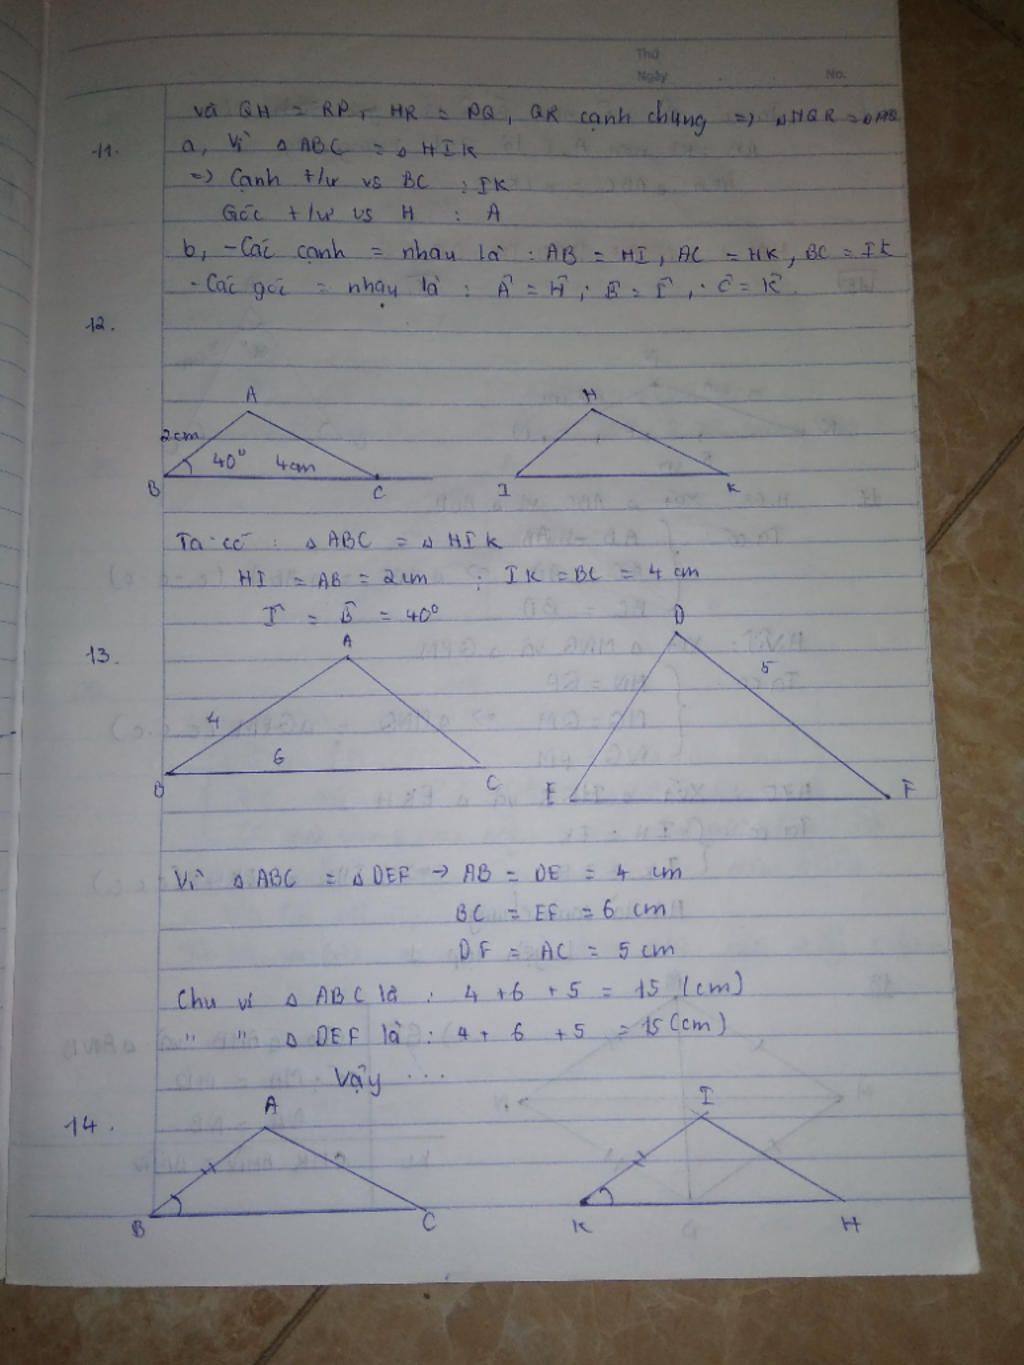 Thứ
Ngày
No.
và QH = RP, HR = PQ, QR cạnh chung => △HQR =
11.
a, Vì △ABC = △HIK
=> Cạnh t/ư vs BC : IK
Góc t/ư vs H : A
b, - Các cạnh = nhau là : AB = HI, AC = HK, BC = IK
- Các góc = nhau là : Â = Ĥ ; B̂ = Î ; Ĉ = K̂
12.
A
H
2cm
40° 4cm
B
C
I
K
Ta có : △ABC = △HIK
HI = AB = 2cm ; IK = BC = 4 cm
Î = B̂ = 40°
13.
A
D
4
5
6
B
C
E
F
Vì △ABC = △DEF → AB = DE = 4 cm
BC = EF = 6 cm
DF = AC = 5 cm
Chu vi △ABC là : 4 + 6 + 5 = 15 (cm)
" " △DEF là : 4 + 6 + 5 = 15 (cm)
Vậy ...
14.
A
I
B
C
K
H